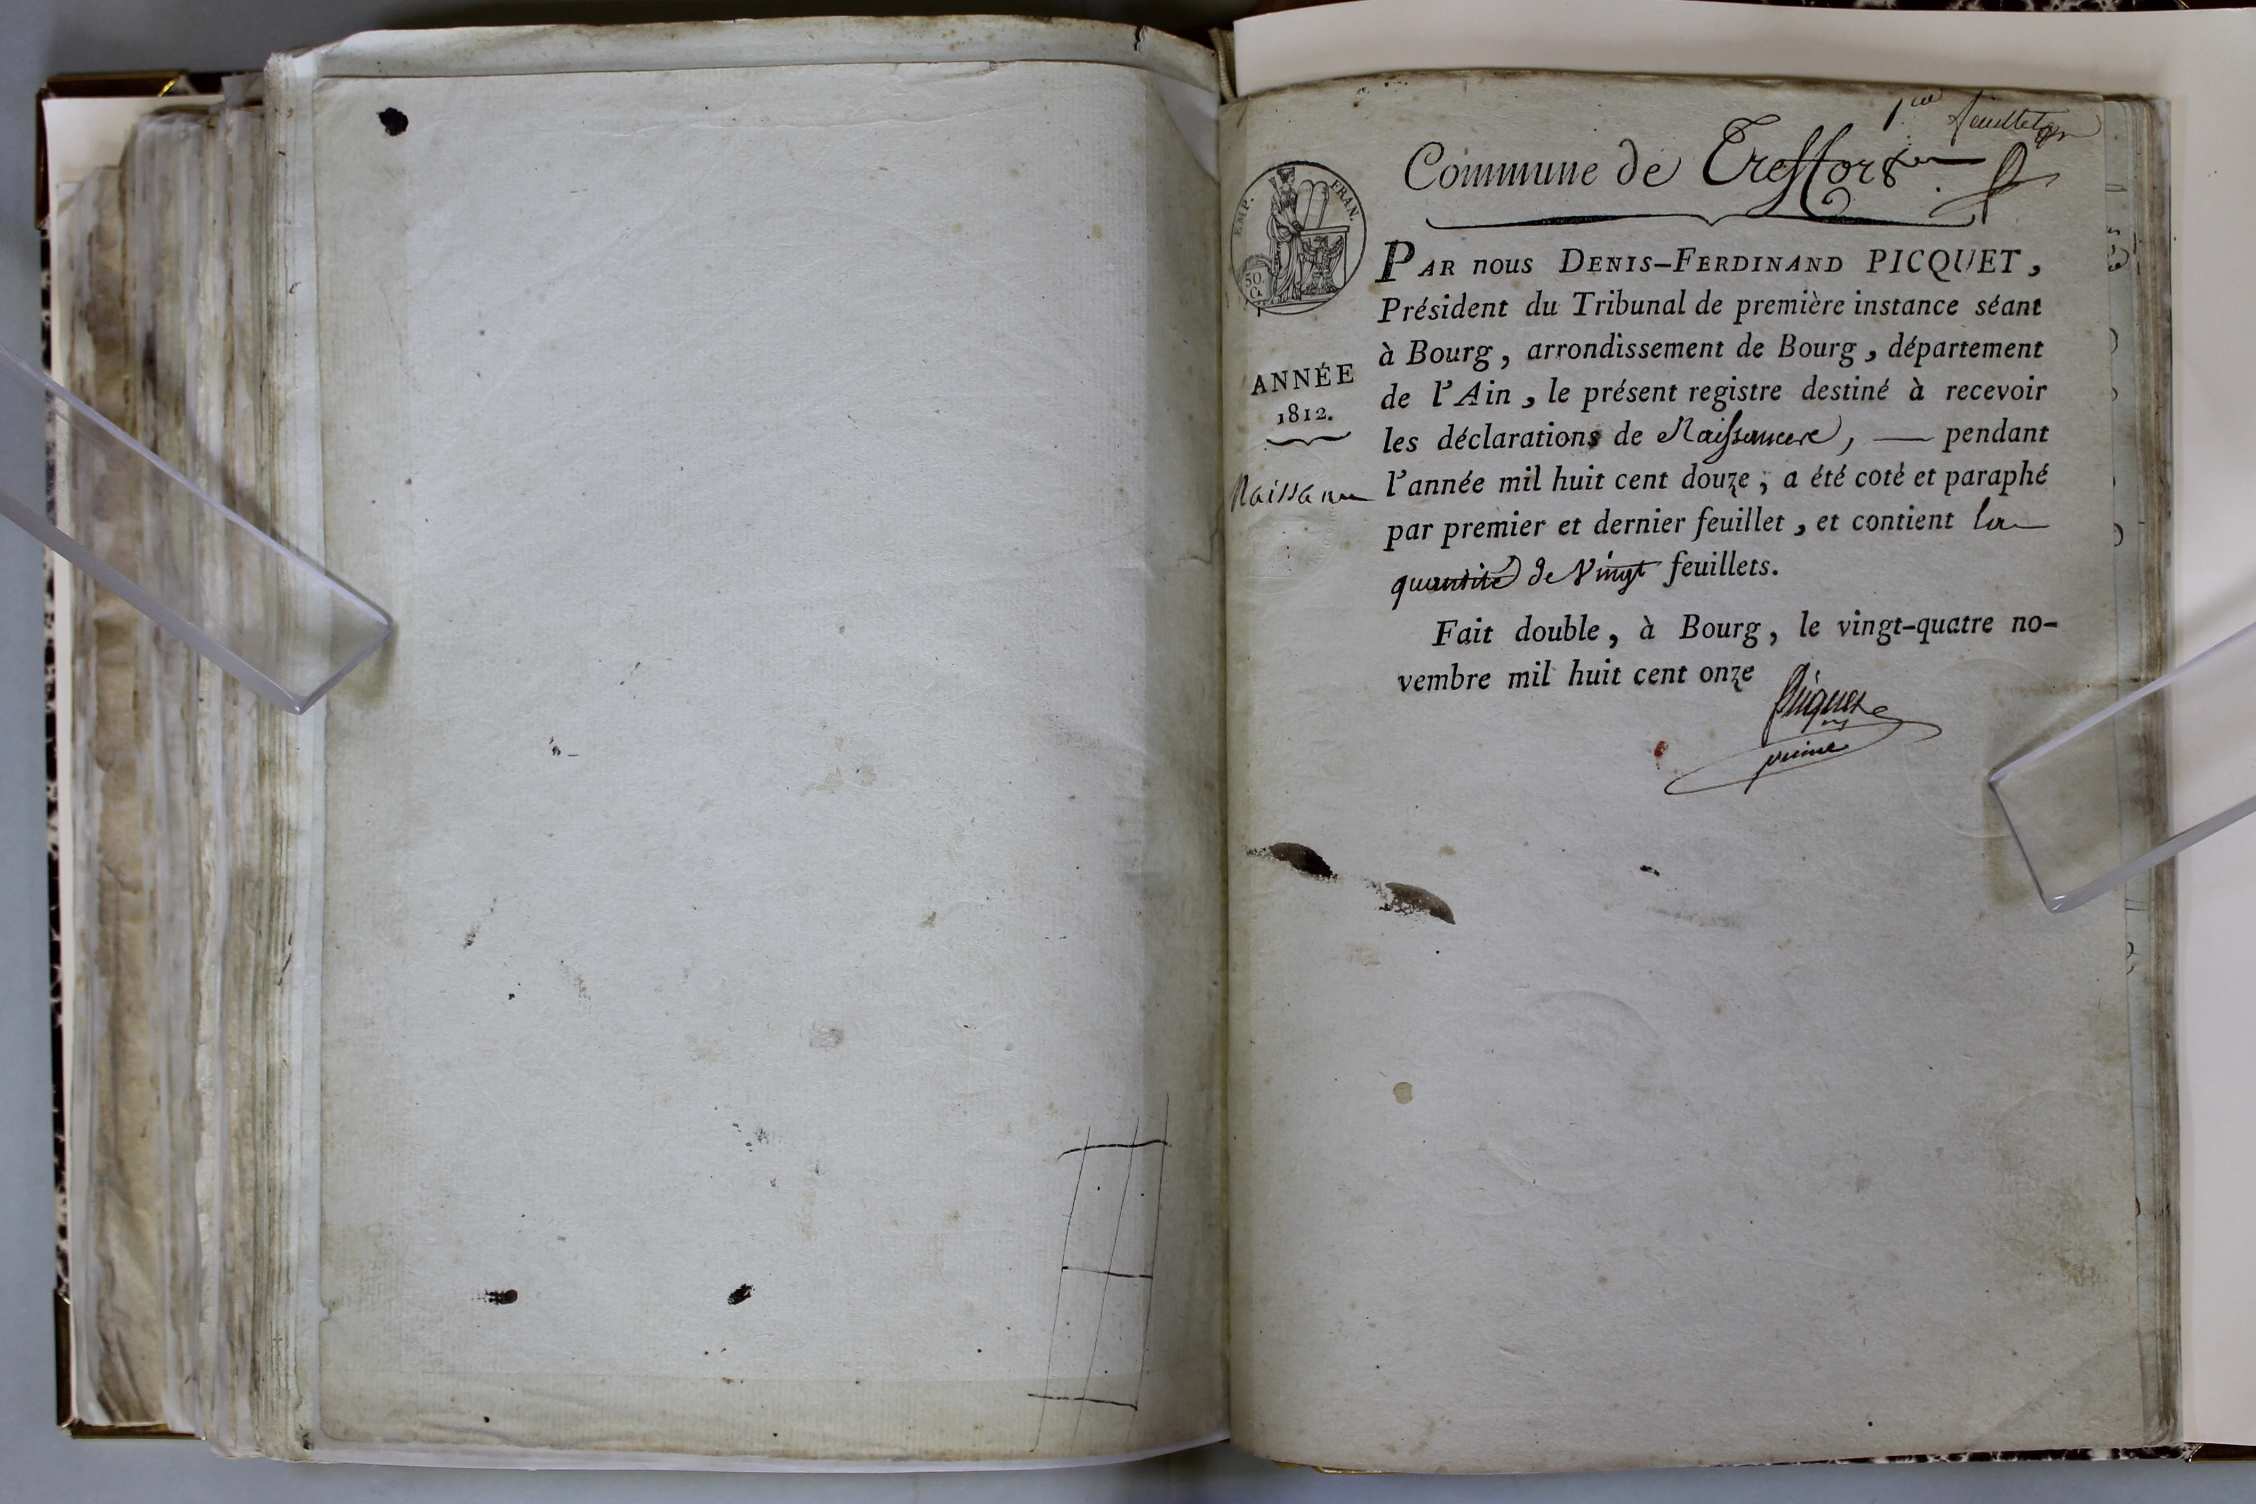 1er feuillet
Commune de Treffort
EMP. FRAN.
50 C.
PAR nous DENIS-FERDINAND PICQUET,
Président du Tribunal de première instance séant
à Bourg, arrondissement de Bourg, département
ANNÉE
1812.
de l'Ain, le présent registre destiné à recevoir
les déclarations de Naissance, — pendant
Naissance
l'année mil huit cent douze, a été coté et paraphé
par premier et dernier feuillet, et contient la
quantité de Vingt feuillets.
Fait double, à Bourg, le vingt-quatre no-
vembre mil huit cent onze
Picquet